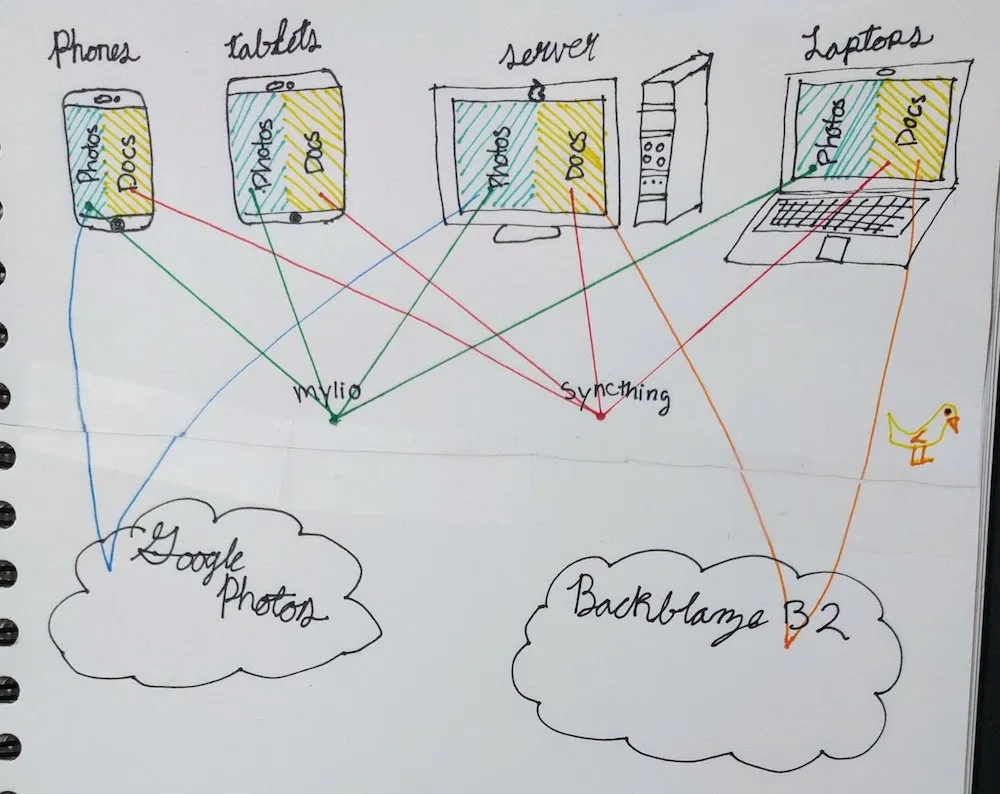 Phones
tablets
server
Laptops
Photos
Docs
Photos
Docs
Photos
Docs
Photos
Docs
mylio
Syncthing
Google
Photos
Backblaze B2